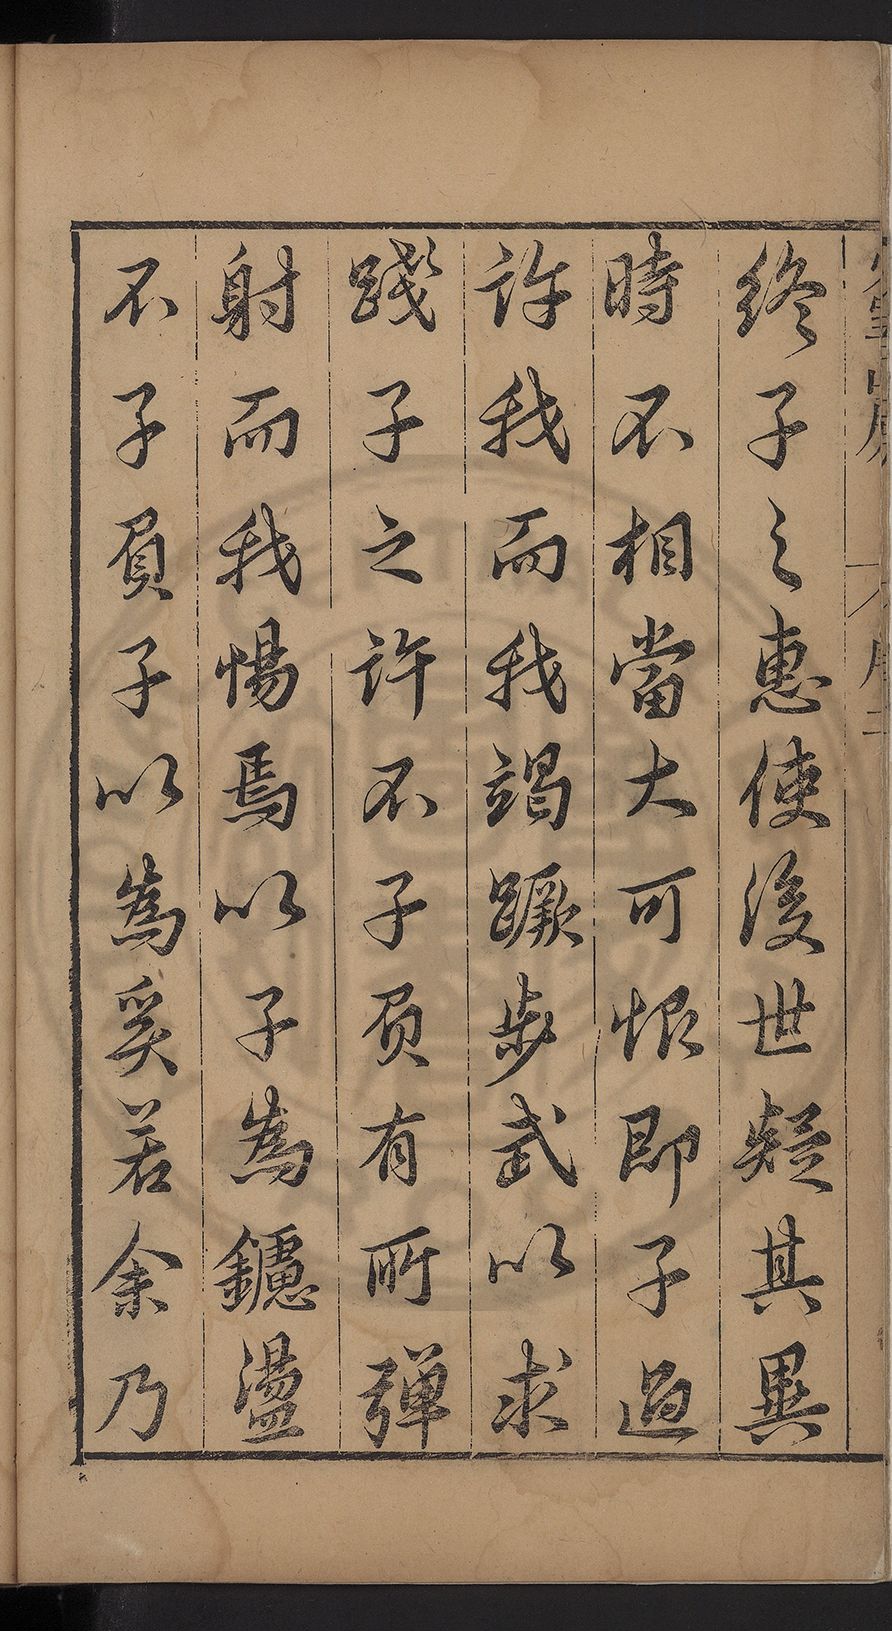 終子之惠使後世疑其異
時不相當大可恨即子過
許我而我竭蹶步武以求
踐子之許不子負有所彈
射而我惕焉以子為鑢盪
不子負子以為奚若余乃